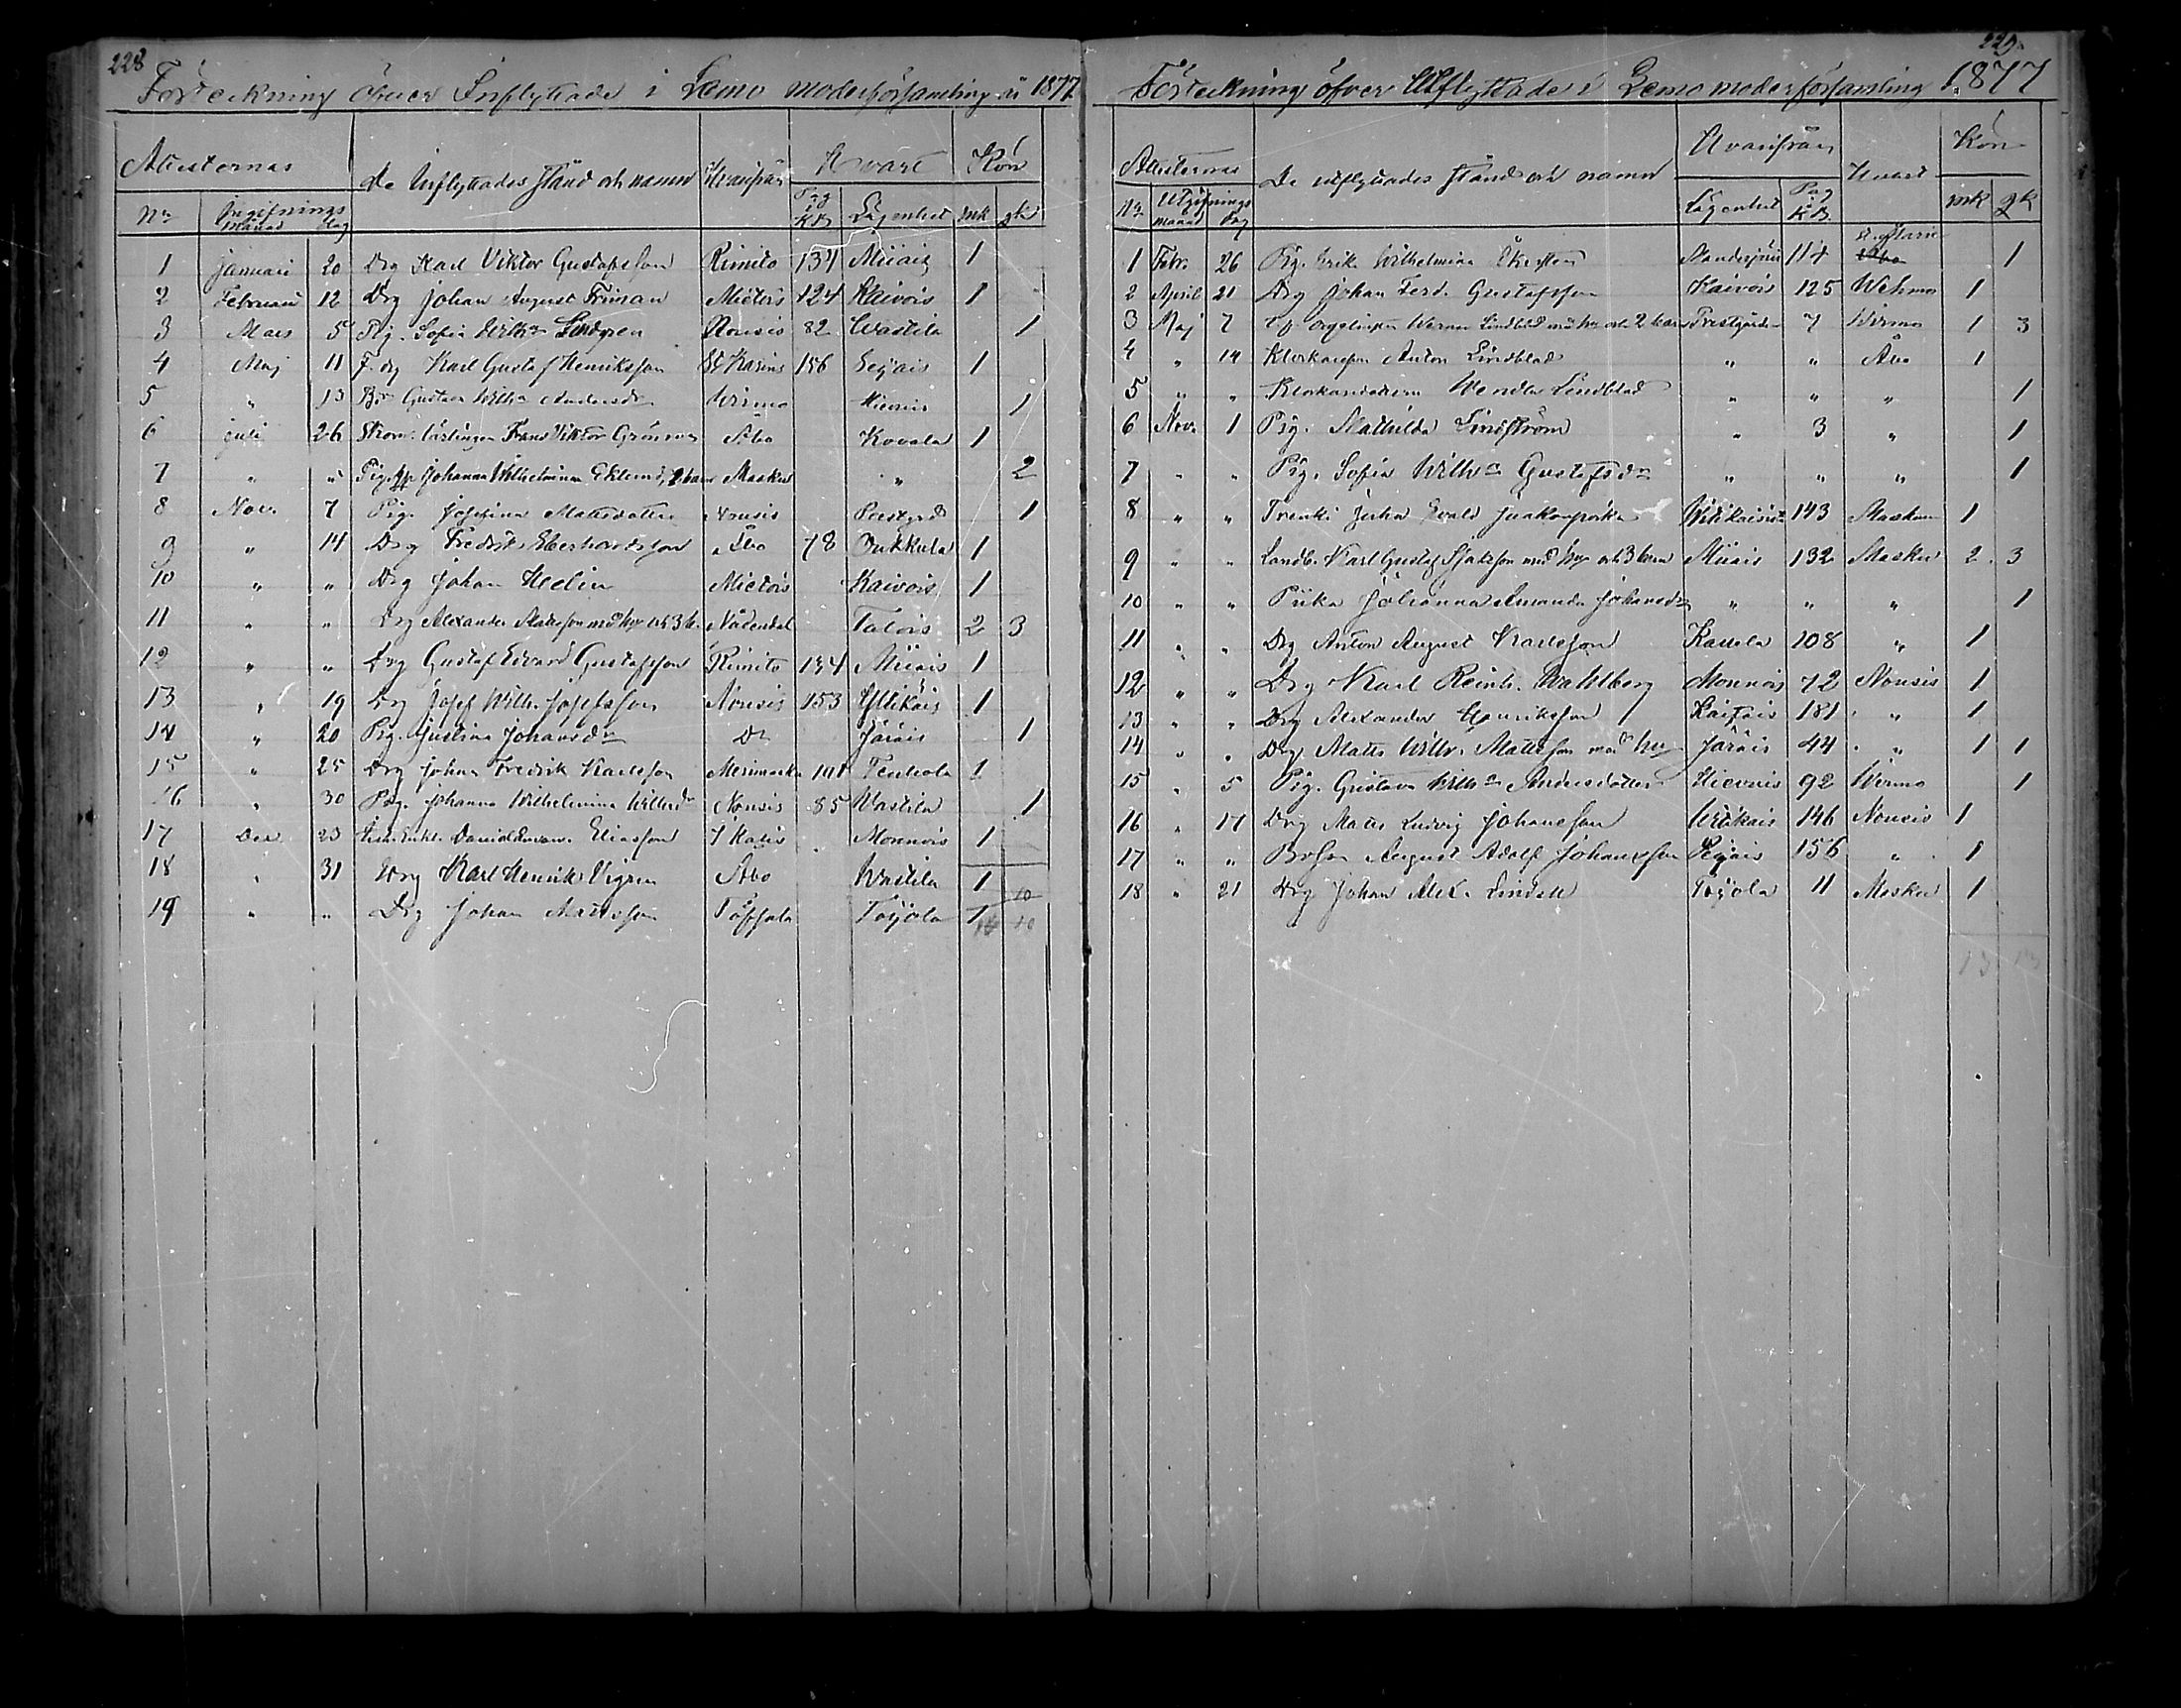 228
Förteckning öfver Inflyttade i Lemo moderförsamling år 1877
Attesternas De Inflyttades stånd och namn Hvarifrån Hvart Kön
No Ingifnings månad dag Pag i KB Lägenhet mk qk
1 Januari 20 Drg Karl Viktor Gustafsson Rimito 134 Miiais 1
2 Februari 12 Drg Johan August Friman Mietois 124 Kaivois 1
3 Mars 5 Pig. Sofia Wilhna Lindgren Nousis 82 Wastila 1
4 Maj 11 F. drg Karl Gustaf Henriksson St Karins 156 Leijais 1
5 " 13 Gustava Wilhna Andersdr Wirmo Hievais 1
6 Juli 26 Frans Viktor Grönroos Åbo Kovola 1
7 " " Pig. Johanna Wilhelmina Eklund, 1 barn Masku " 2
8 Nov. 7 Pig. Josefina Mattsdotter Nousis Prestgård 1
9 " 14 Drg Fredrik Eberhardsson Åbo 78 Onkkula 1
10 " " Drg Johan Helin Mietois Kaivois 1
11 " " Drg Alexander Mattsson med hu och 3 b. Nådendal Talois 2 3
12 " " Drg Gustaf Edvard Gustafsson Rimito 134 Miiais 1
13 " 19 Drg Josef Wilh. Josefsson Nousis 153 Yllikäis 1
14 " 20 Pig. Justina Johansdr Do Järäis 1
15 " 25 Drg Johan Fredrik Karlsson Merimasku 101 Teuhola 1
16 " 30 Pig. Johanna Wilhelmina Nousis 85 Wastila 1
17 Dec 23 Eliasson Monnois 1
18 " 31 Drg Karl Henrik Vigren Åbo Wastila 1
10
19 " " Drg Johan Mattsson Töfsala Toijola 1
10
229
Förteckning öfver Utflyttade i Lemo moderförsamling 1877
Attesternas De utflyttades stånd och namn Hvarifrån Hvart Kön
No Utgifnings månad dag Lägenhet Pag i KB mk qk
1 Febr. 26 Pig. Erika Wilhelmina 114 St Marie Åbo 1
2 April 21 Drg Johan Ferd. Gustafsson Kaivois 125 Wehmo 1
3 Maj 7 Werner Lindblad med hu och 2 barn Prestgården 7 Wirmo 1 3
4 " 14 Klockareson Anton Lindblad " " Åbo 1
5 " " Klockaredottern Wendla Lindblad " " " 1
6 Nov. 1 Pig. Mathilda Lindström " 3 " 1
7 " " Pig. Sofia Wilhna Gustafsdr " " " 1
8 " " Trenki Juha Evald Juakonpoika 143 Masku 1
9 " " Landb. Karl Gustaf Isaksson med hu och 3 barn Miiais 132 Masku 2 3
10 " " Piika Johanna Amanda Johansdr " " " 1
11 " " Drg Anton August Karlsson Kaucla 108 " 1
12 " " Drg Karl Reinh. Wahlberg Monnois 72 Nousis 1
13 " " Drg Alexander Henriksson Kaitais 181 " 1
14 " " Drg Matts Wilh. Mattsson med hu Järäis 44 " 1 1
15 " 5 Pig. Gustava Wilhna Andersdotter Hievais 92 Wirmo 1
16 " 17 Drg Matts Ludvig Johansson Yllikäis 146 Nousis 1
17 " " August Adolf Johansson Leijais 156 " 1
18 " 21 Drg Johan Alex. Lindell Toijola 11 Masku 1
13 13